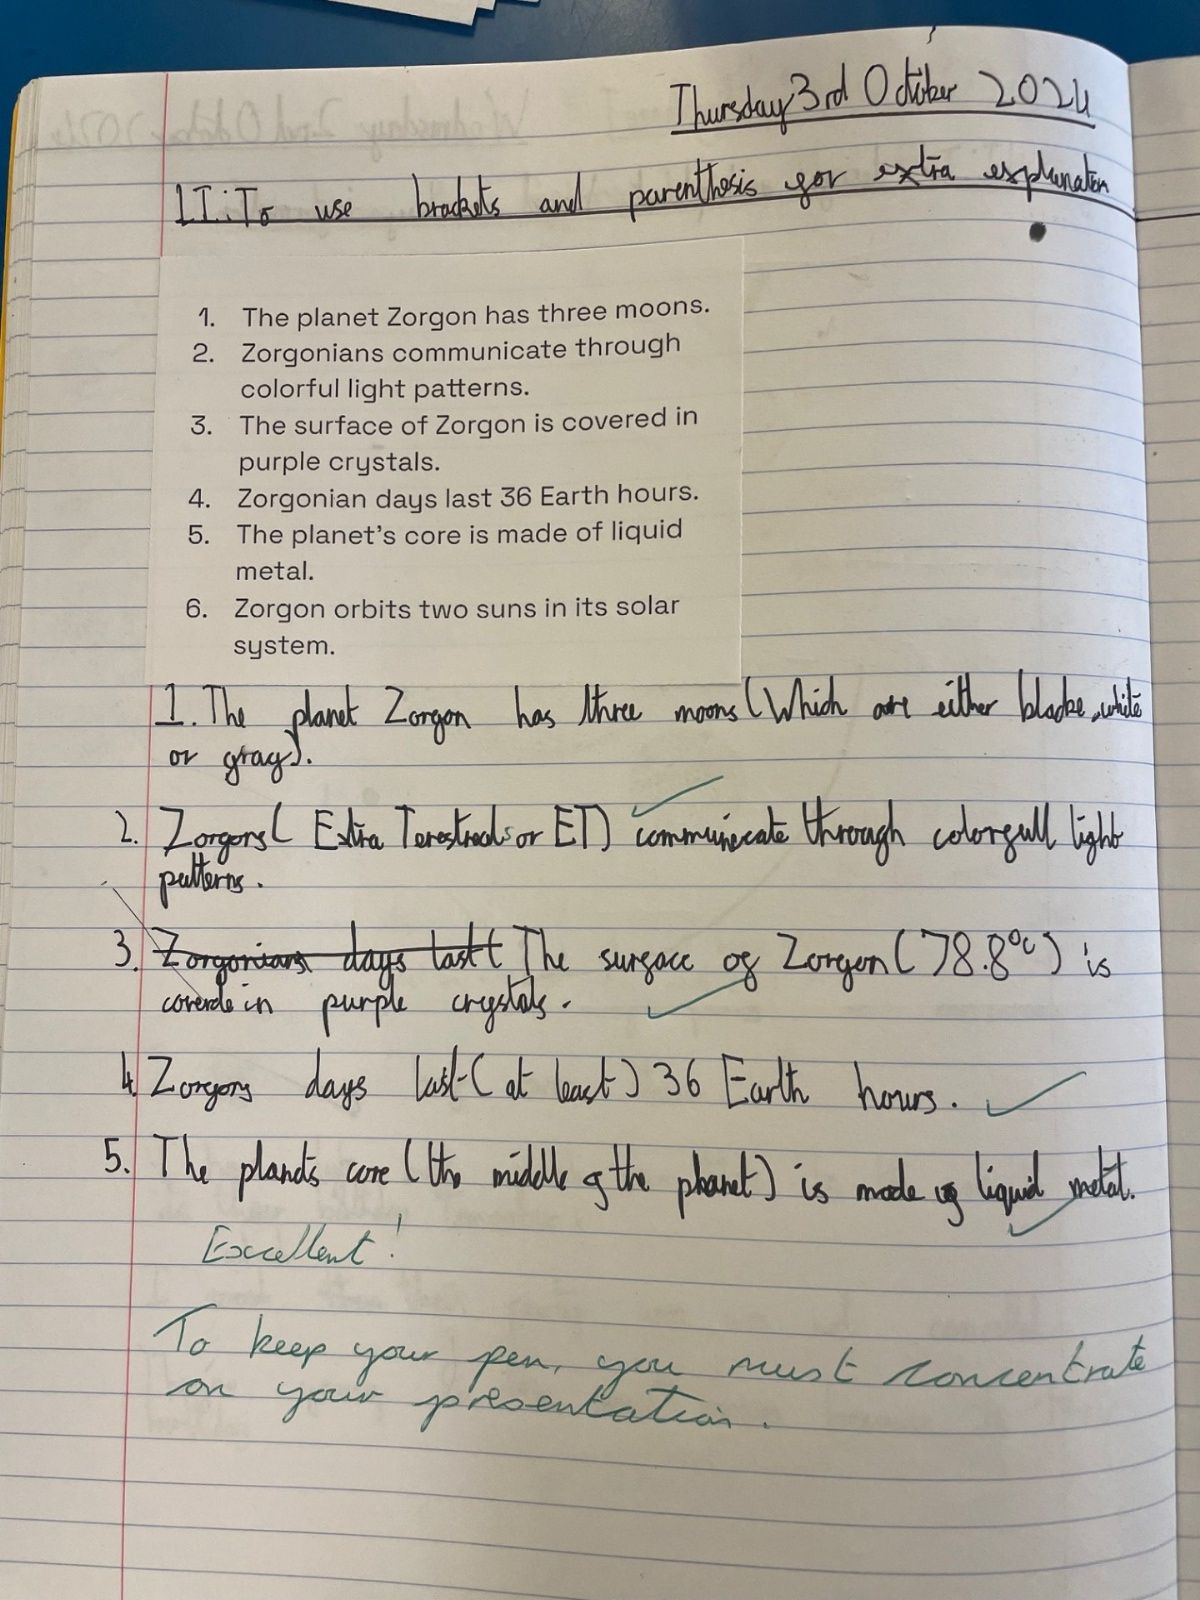 Thursday 3rd October 2024
LI: To use brackets and parenthesis for extra explanation
1. The planet Zorgon has three moons.
2. Zorgonians communicate through
colorful light patterns.
3. The surface of Zorgon is covered in
purple crystals.
4. Zorgonian days last 36 Earth hours.
5. The planet's core is made of liquid
metal.
6. Zorgon orbits two suns in its solar
system.
1. The planet Zorgon has three moons (Which are either blacke, white
or gray).
2. Zorgons ( Extra Terestreals or ET) communicate through colorfull light
patterns.
3. Zorgonians days last ( The surface of Zorgon ( 78.8°c ) is
coverde in purple crystals.
4. Zorgons days last ( at least ) 36 Earth hours.
5. The planets core (the middle of the planet) is made of liquid metal.
Excellent!
To keep your pen, you must concentrate
on your presentation.